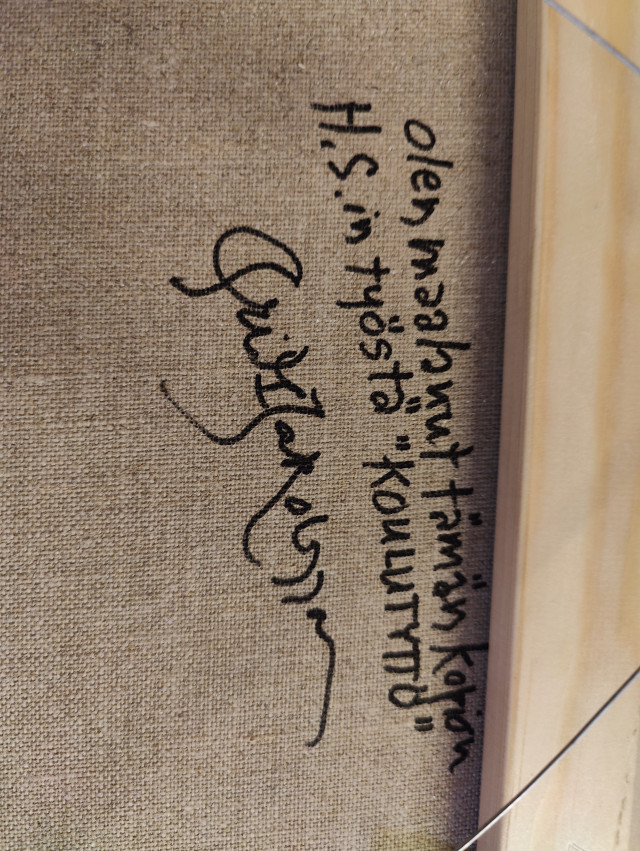 olen maalannut tämän kopion
H.S.in työstä "KOULUTYTTÖ"